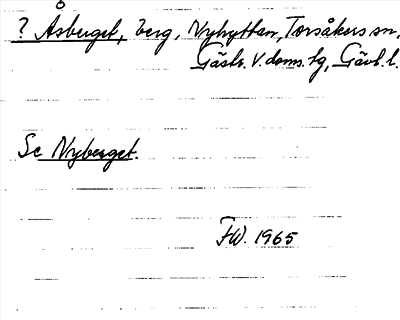 ? Åsberget, berg, Nyhyttan, Torsåkers sn,
Gästr. V. doms. tg, Gävl. l.
Se Nyberget.
FW. 1965